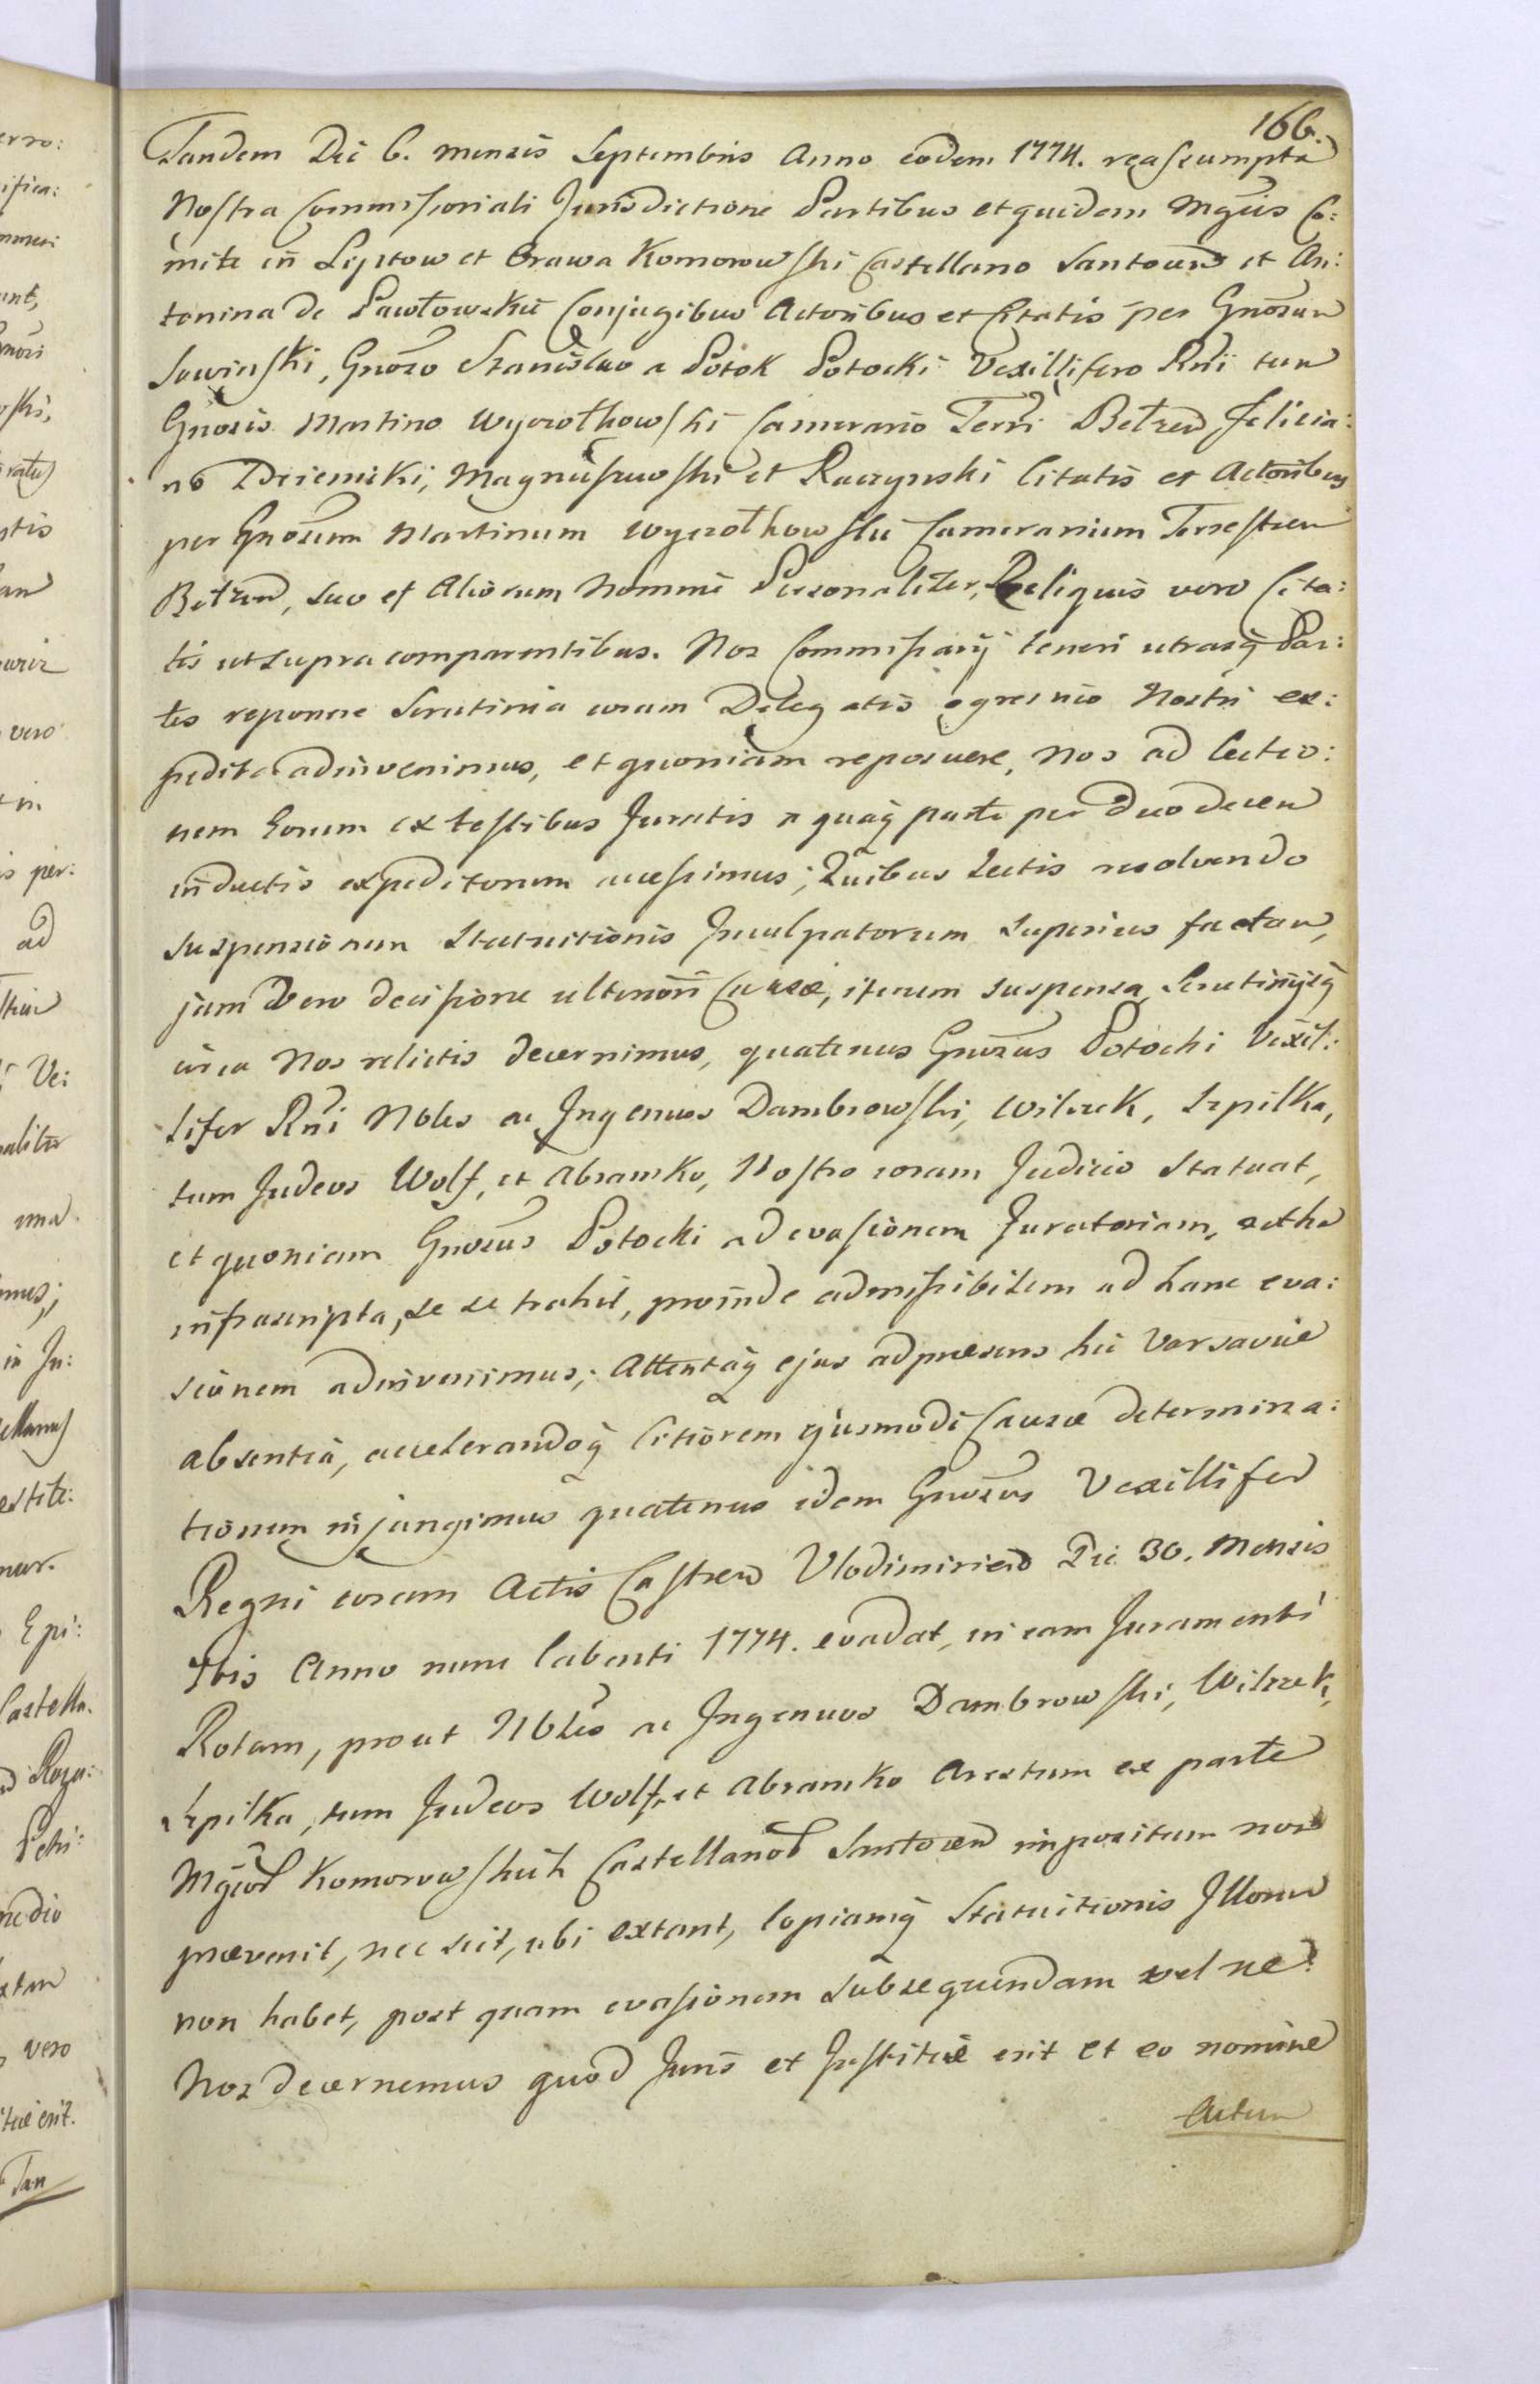 166.
Tandem Die 6. mensis Septembris Anno eodem 1774. reassumpta
Nostra Commissoriali Jurisdictione Partibus et quidem Mgcis Co:
mite in Liptow et Orawa Komorowski Castellano Santocen et An:
tonina de Pawłowskie Conjugibus Actoribus et Citatis per Gnosum
Sowinski, Gnoso Stanislao a Potok Potocki Vexillifero Rni tum
Gnosis Martino Wyczołkowski Camerario Terri Bełzen, Felicia:
no Dziemicki, Magnuszewski et Raczynski Citatis et Actoribus
per Gnosum Martinum Wyczołkowski Camerarium Terrestrem
Bełzen, suo et Aliorum Nomine Personaliter, Reliquis vero Cita:
tis ut supra comparentibus. Nos Commissarij teneri utrasq Par:
tes reponere Scrutinia coram Delegatis e gremio Nostri ex:
pedita adinvenimus, et quoniam reposuere, Nos ad lectio:
nem Eorum ex testibus Juratis a quaq parte per duodecem
inductis expeditorum accessimus; Quibus Lectis resolvendo
suspensionem Statuitionis Inculpatorum superius factam,
jam vero decisione ulteriori Causæ, iterum suspensa, Scrutinijsq
circa Nos relictis decernimus, quatenus Gnosus Potocki Vexil:
lifer Rni Nbles ac Ingenuos Dambrowski, Wilczek, Szpilka,
tum Judeos Wolf, et Abramko, Nostro coram Judicio Statuat,
et quoniam Gnosus Potocki ad evasionem Juratoriam, rotha
infrascripta, se se trahit, proinde admissibilem ad hanc eva:
sionem adinvenimus; Attentaq ejus ad præsens hic Varsaviæ
absentia, accelerandoq Citiorem ejusmodi Causæ determina:
tionem injungimus quatenus idem Gnosus Vexillifer
Regni coram Actis Castren Vlodimirien Die 30. Mensis
7bris Anno nunc labenti 1774. evadat, in eam Juramenti
Rotam, prout Nbles ac Ingenuos Dambrowski, Wilczek,
Szpilka, tum Judeos Wolf, et Abramko Arestum ex parte
Mgcor Komorowskich Castellanor Santocen impositum non
prævenit, nec scit, ubi extant, copiamq Statuitionis Illorum
non habet, post quam evasionem subsequendam vel ne
Nos decernemus quod Juris et Justitiæ erit et eo nomine
Actum